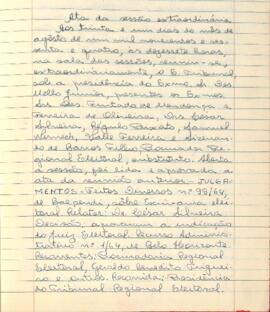 Ata da sessão extraordinária
Aos trinta e um dias do mês de
agôsto de um mil novecentos e ses-
senta e quatro, às dezessete horas,
na sala das sessões, reuniu-se,
extraordinariamente, o E. Tribunal,
sob a presidência do Exmo. Sr. Des.
Mello Júnior, presentes os Exmos.
Srs. Des. Furtado de Mendonça e
Ferreira de Oliveira, Drs. Cezar
Silveira, Régulo Peixoto, Samuel
Werneck, Valle Ferreira e
de Barros Filho, Procurador Re-
gional Eleitoral, substituto. Aberta
a sessão, foi lida e aprovada a
ata da reunião anterior. - JULGA-
MENTOS: - Feitos Diversos nº 99/64,
de Baependi, sôbre Escrivania elei-
toral. Relator: Dr. César Silveira
Decisão, aprovaram a indicação
do Juiz Eleitoral. Recurso Adminis-
trativo nº 1/64, de Belo Horizonte
Recorrentes: Procuradoria Regional
Eleitoral, Geraldo Benedito
e outros. Recorrida: Presidência
do Tribunal Regional Eleitoral.